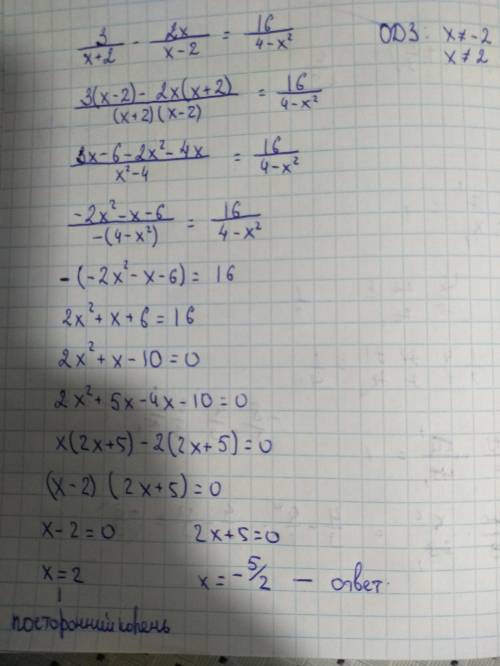 3/(x+2) - 2x/(x-2) = 16/(4-x²) ОДЗ: x≠-2
x≠2
(3(x-2) - 2x(x+2))/((x+2)(x-2)) = 16/(4-x²)
(3x-6-2x²-4x)/(x²-4) = 16/(4-x²)
(-2x²-x-6)/(-(4-x²)) = 16/(4-x²)
-(-2x²-x-6) = 16
2x²+x+6=16
2x²+x-10=0
2x²+5x-4x-10=0
x(2x+5)-2(2x+5)=0
(x-2)(2x+5)=0
x-2=0 2x+5=0
x=2 x=-5/2 — ответ.
посторонний корень